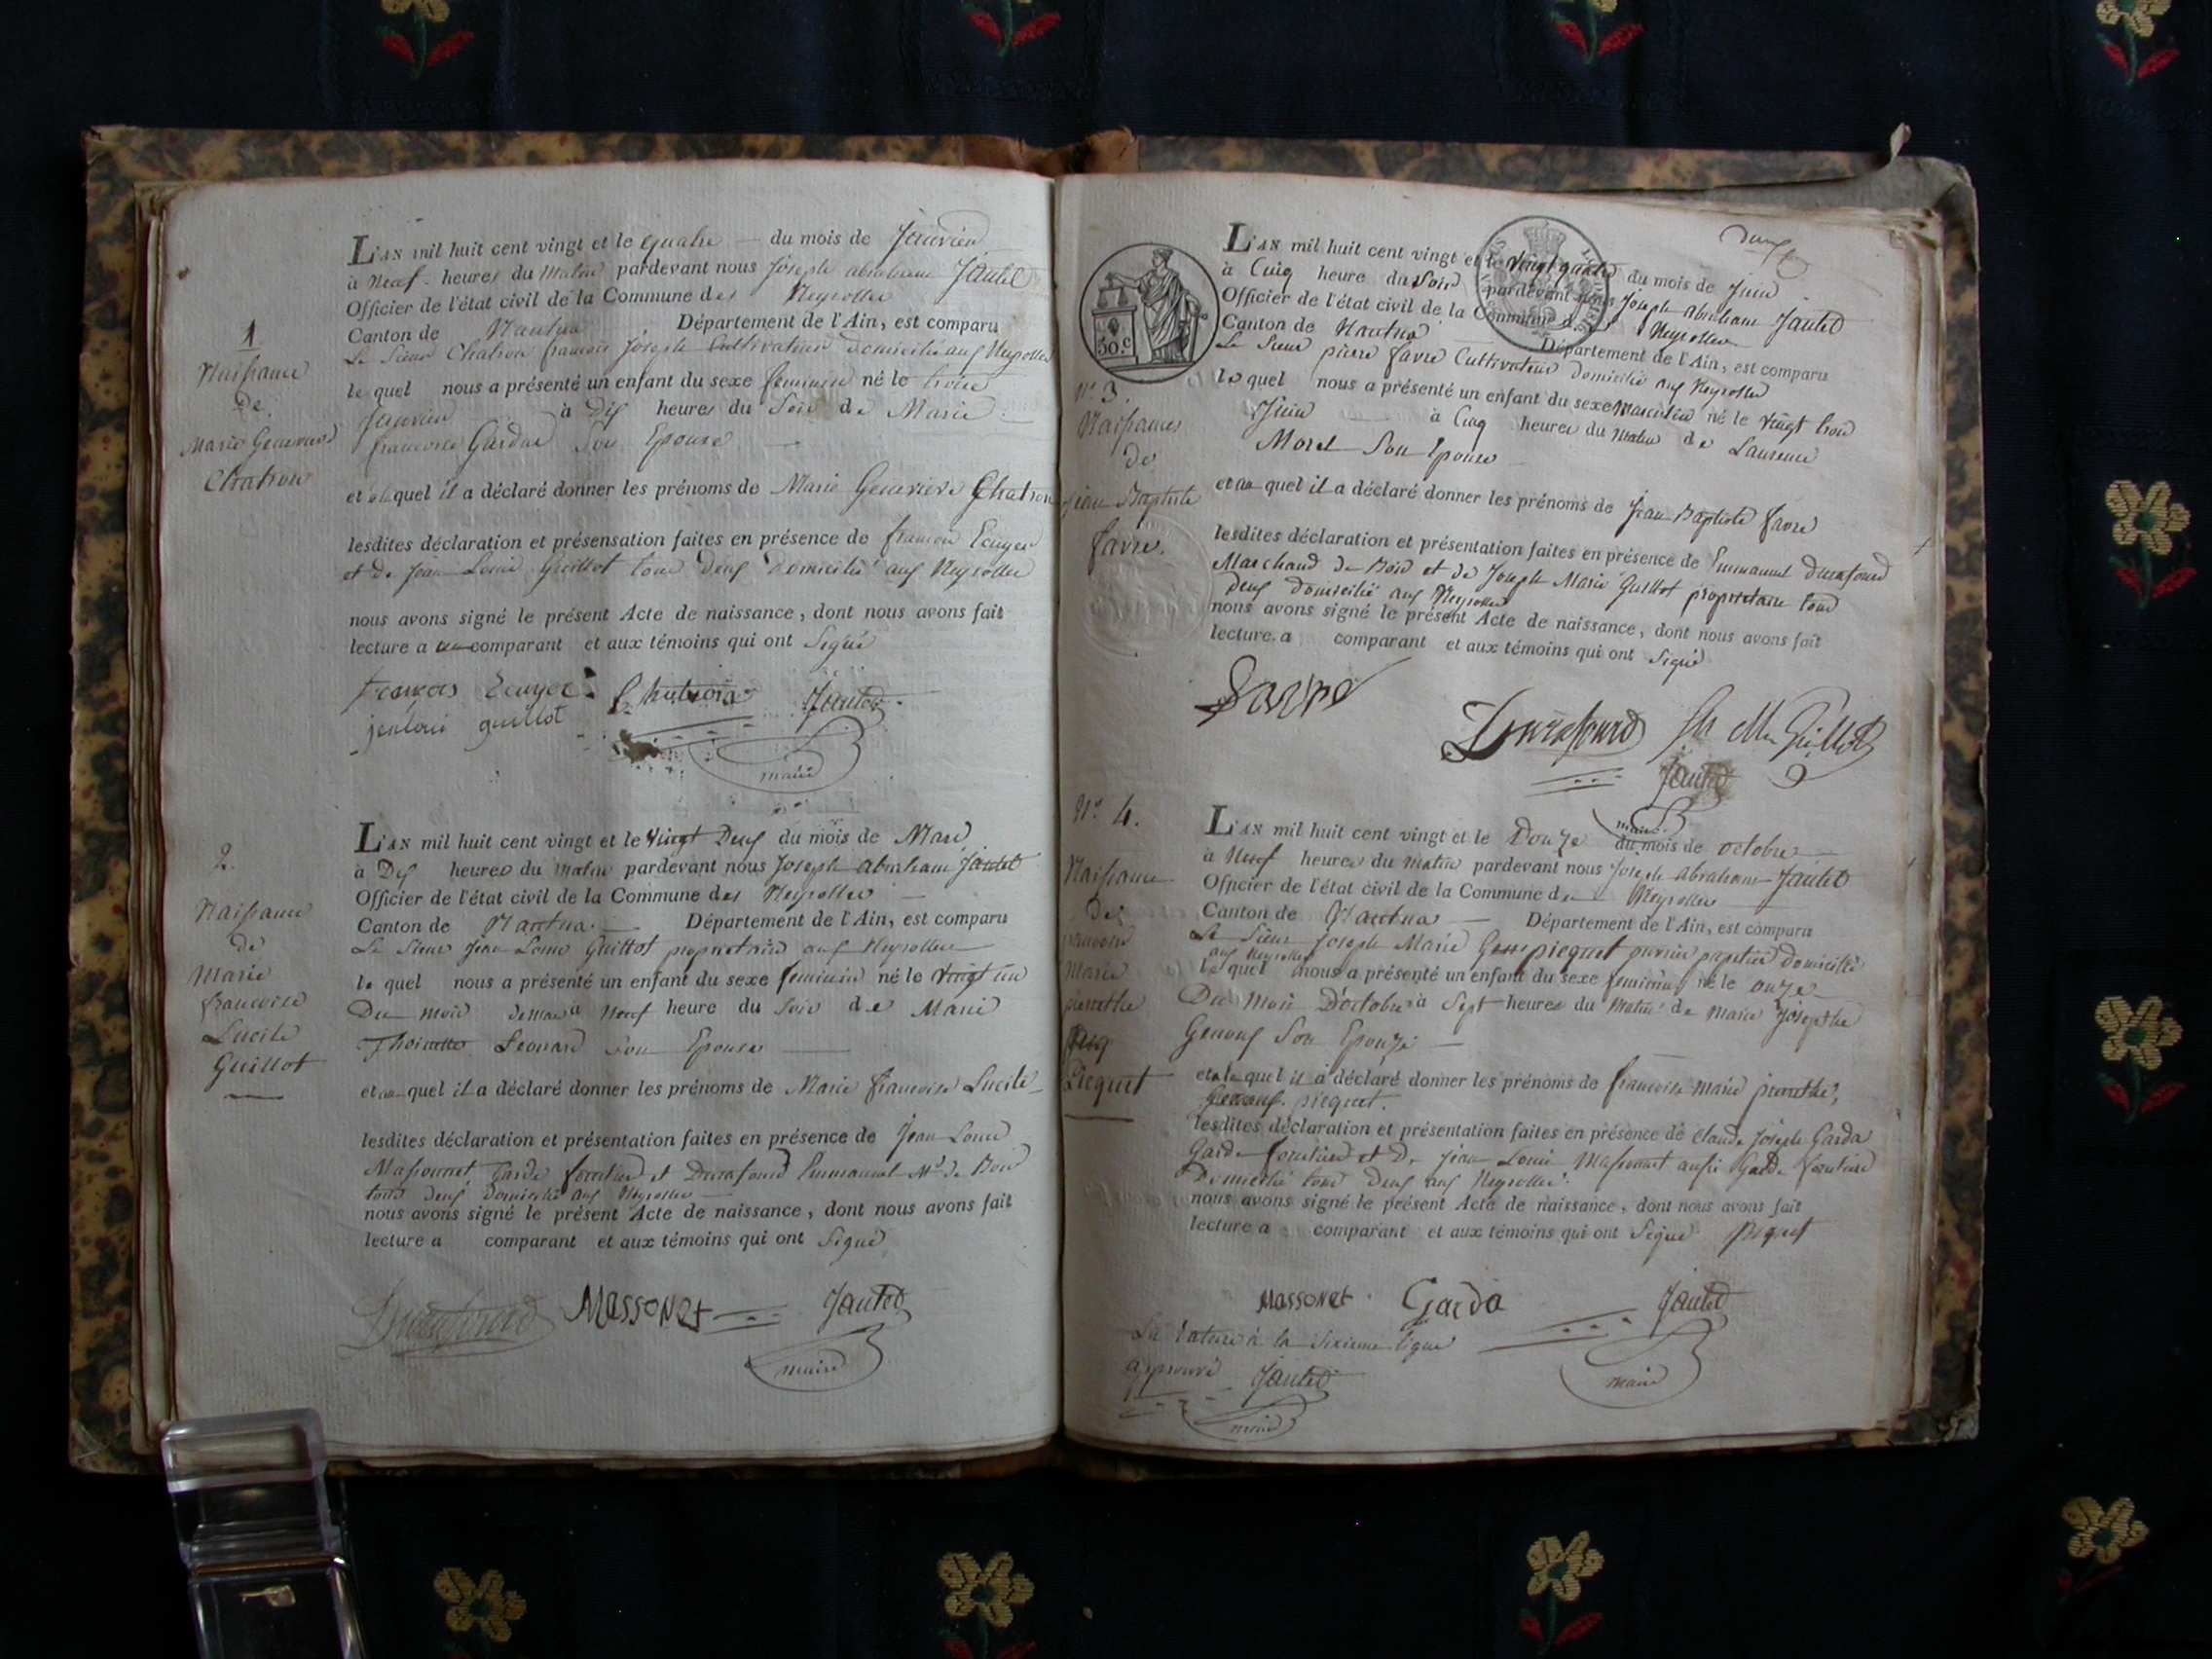 1
Naissance
de
Marie Genevieve
Chatron
L'AN mil huit cent vingt et le quatre du mois de Janvier
à neuf heures du matin pardevant nous Joseph abraham Jantet
Officier de l'état civil de la Commune des Neyrolles
Canton de Nantua Département de l'Ain, est comparu
Le Sieur Chatron francois Joseph Cultivateur domicilié aux Neyrolles
le quel nous a présenté un enfant du sexe feminin né le trois
Janvier à Dix heures du Soir de Marie
francoise Gardaz Son Epouse
et quel il a déclaré donner les prénoms de Marie Genevieve Chatron
lesdites déclaration et présensation faites en présence de francois Ecuyer
et de Jean Louis Guillot tous deux domicilié aux Neyrolles
nous avons signé le présent Acte de naissance, dont nous avons fait
lecture a comparant et aux témoins qui ont Signé
francois Ecuyer Chatron Jantet
jenloui guillot
maire
2.
Naissance
de
Marie
francoise
Lucile
Guillot
L'AN mil huit cent vingt et le vingt Deux du mois de Mars
à Dix heures du matin pardevant nous Joseph abraham Jantet
Officier de l'état civil de la Commune des Neyrolles
Canton de Nantua Département de l'Ain, est comparu
Le Sieur Jean Louis Guillot proprietaire aux Neyrolles
le quel nous a présenté un enfant du sexe feminin né le vingt un
Du mois de mars à Neuf heure du Soir de Marie
Thoinette Leonard son Epouse
et au quel il a déclaré donner les prénoms de Marie francoise Lucile
lesdites déclaration et présentation faites en présence de Jean Louis
Massonnet Garde forestier et Durafourd Emmanuel Md de Bois
tous deux domicilié aux Neyrolles
nous avons signé le présent Acte de naissance, dont nous avons fait
lecture a comparant et aux témoins qui ont Signé
Durafourd Massonet Jantet
maire
deux
30.c
N.o 3.
Naissances
de
Jean Baptiste
favre.
L'AN mil huit cent vingt et le vingt quatre du mois de Juin
à Cinq heure du Soir pardevant nous Joseph abraham Jantet
Officier de l'état civil de la Commune des Neyrolles
Canton de Nantua Département de l'Ain, est comparu
Le Sieur pierre favre Cultivateur domicilié aux Neyrolles
le quel nous a présenté un enfant du sexe masculin né le vingt trois
Juin à Cinq heures du matin de Laurence
Morel Son Epouse
et au quel il a déclaré donner les prénoms de Jean Baptiste favre
lesdites déclaration et présentation faites en présence de Emmanuel Durafourd
Marchand de Bois et de Joseph Marie Guillot proprietaire tous
deux domicilié aux Neyrolles
nous avons signé le présent Acte de naissance, dont nous avons fait
lecture a comparant et aux témoins qui ont Signé
favre
Durafourd Jh Mie Guillot
Jantet
maire
N.o 4.
Naissance
De
francoise
Marie
pierrethe
Picquet
L'AN mil huit cent vingt et le Douze du mois de octobre
à Neuf heures du matin pardevant nous Joseph abraham Jantet
Officier de l'état civil de la Commune des Neyrolles
Canton de Nantua Département de l'Ain, est comparu
Le Sieur Joseph Marie picquet ouvrier papetier domicilié
aux Neyrolles
le quel nous a présenté un enfant du sexe feminin né le onze
Du mois D'octobre à Sept heures du Matin de marie josephe
Genoux Son Epouze
et quel il a déclaré donner les prénoms de francoise marie pierrethe,
picquet.
lesdites déclaration et présentation faites en présence de claude Joseph Garda
Garde forestier et De jean Louis Massonnet aussi Garde forestier
Domicilié tous Deux aux Neyrolles.
nous avons signé le présent Acte de naissance, dont nous avons fait
lecture a comparant et aux témoins qui ont Signé piquet
Massonet Garda Jantet
maire
La rature à la Sixieme ligne
approuvé Jantet
maire